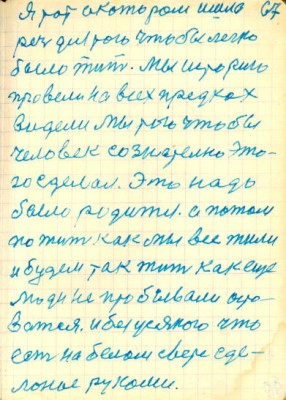 Я тот о котором ишла 67
речь для того чтобы легко
было тит. Мы историю
провели на всех предках
видели мы того чтобы
человек сознателно это-
го сделал. Это надо
было родится. а потом
по тит как мы все тили
и будем так тит как еще
люди не пробывали
ватся. и без усякого что
ест на белом свере сде-
лоное рукоми.